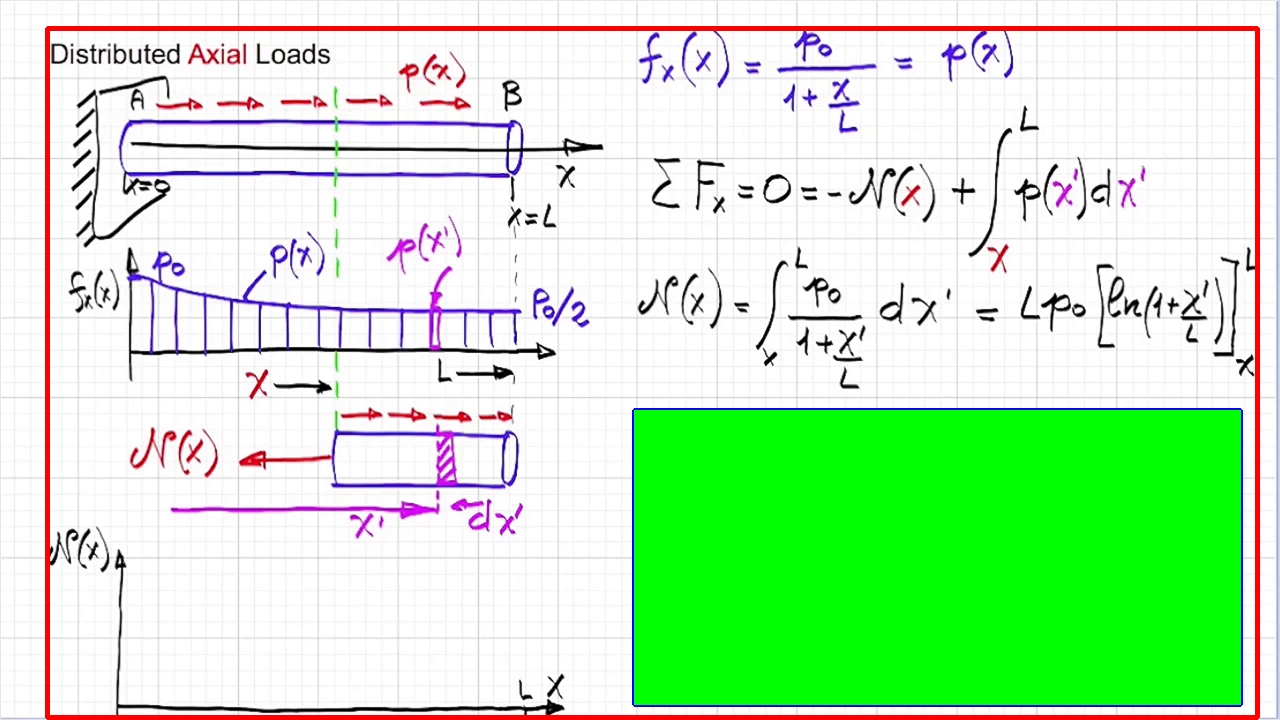 Distributed Axial Loads
p(x)
A
B
x=0
x
x=L
fₓ(x)
p₀
p(x)
p(x')
p₀/2
x
L
N(x)
x'
dx'
N(x)
L x
fₓ(x) = p₀/(1+x/L) = p(x)
∑Fₓ = 0 = -N(x) + ∫ₓᴸ p(x')dx'
N(x) = ∫ₓᴸ p₀/(1+x'/L) dx' = Lp₀[ln(1+x'/L)]ₓᴸ